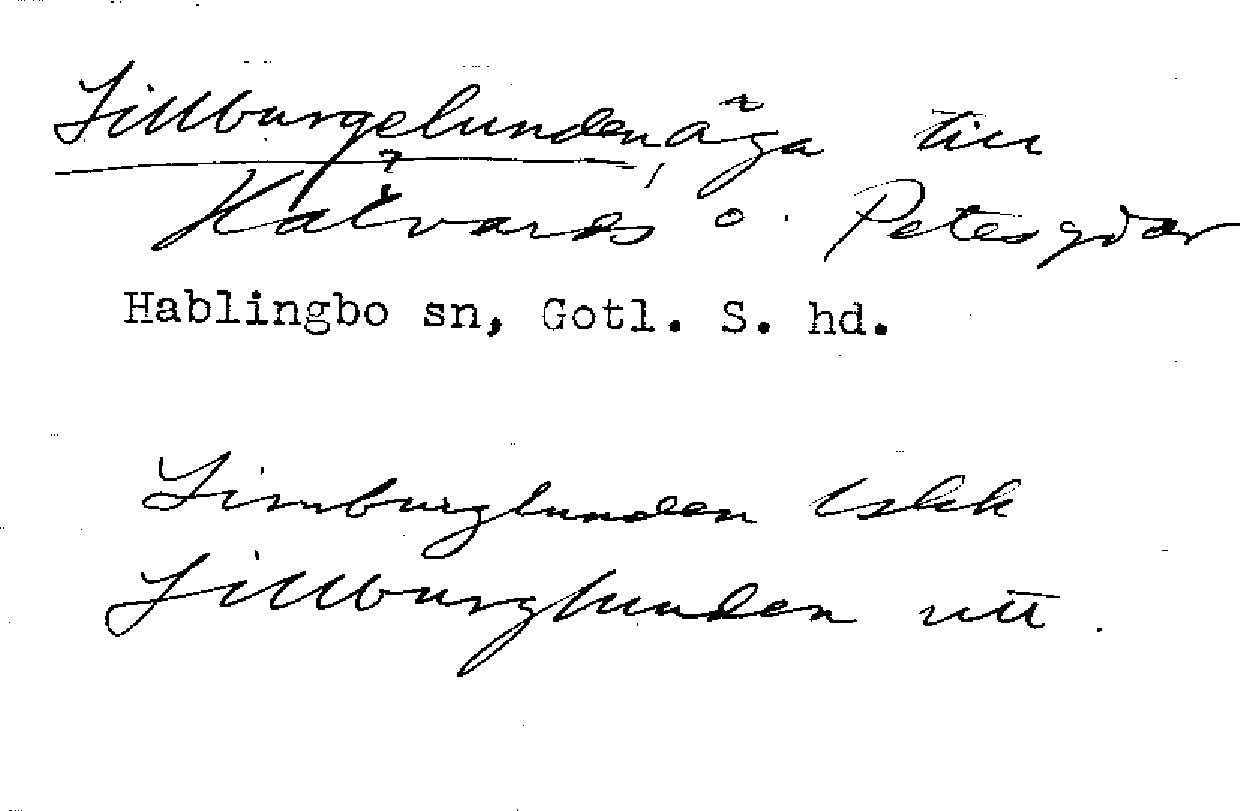 Lillburgelunden, äga till
Kälvards o. Petesgdar
Hablingbo sn, Gotl. S. hd.
Limburglunden
Lillburglunden utt.